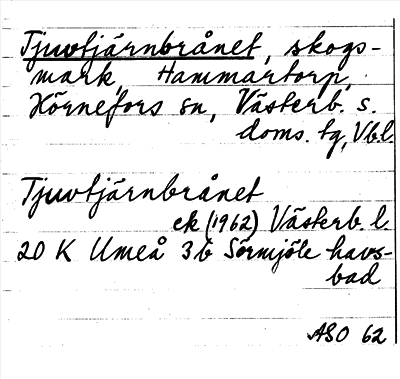 Tjuvtjärnbrånet, skogs-
mark, Hammartorp,
Hörnefors sn, Västerb. s.
doms. tg, Vbl.
Tjuvtjärnbrånet
ek (1962) Västerb. l.
20 K Umeå 3b Sörmjöle havs-
bad
ASO 62